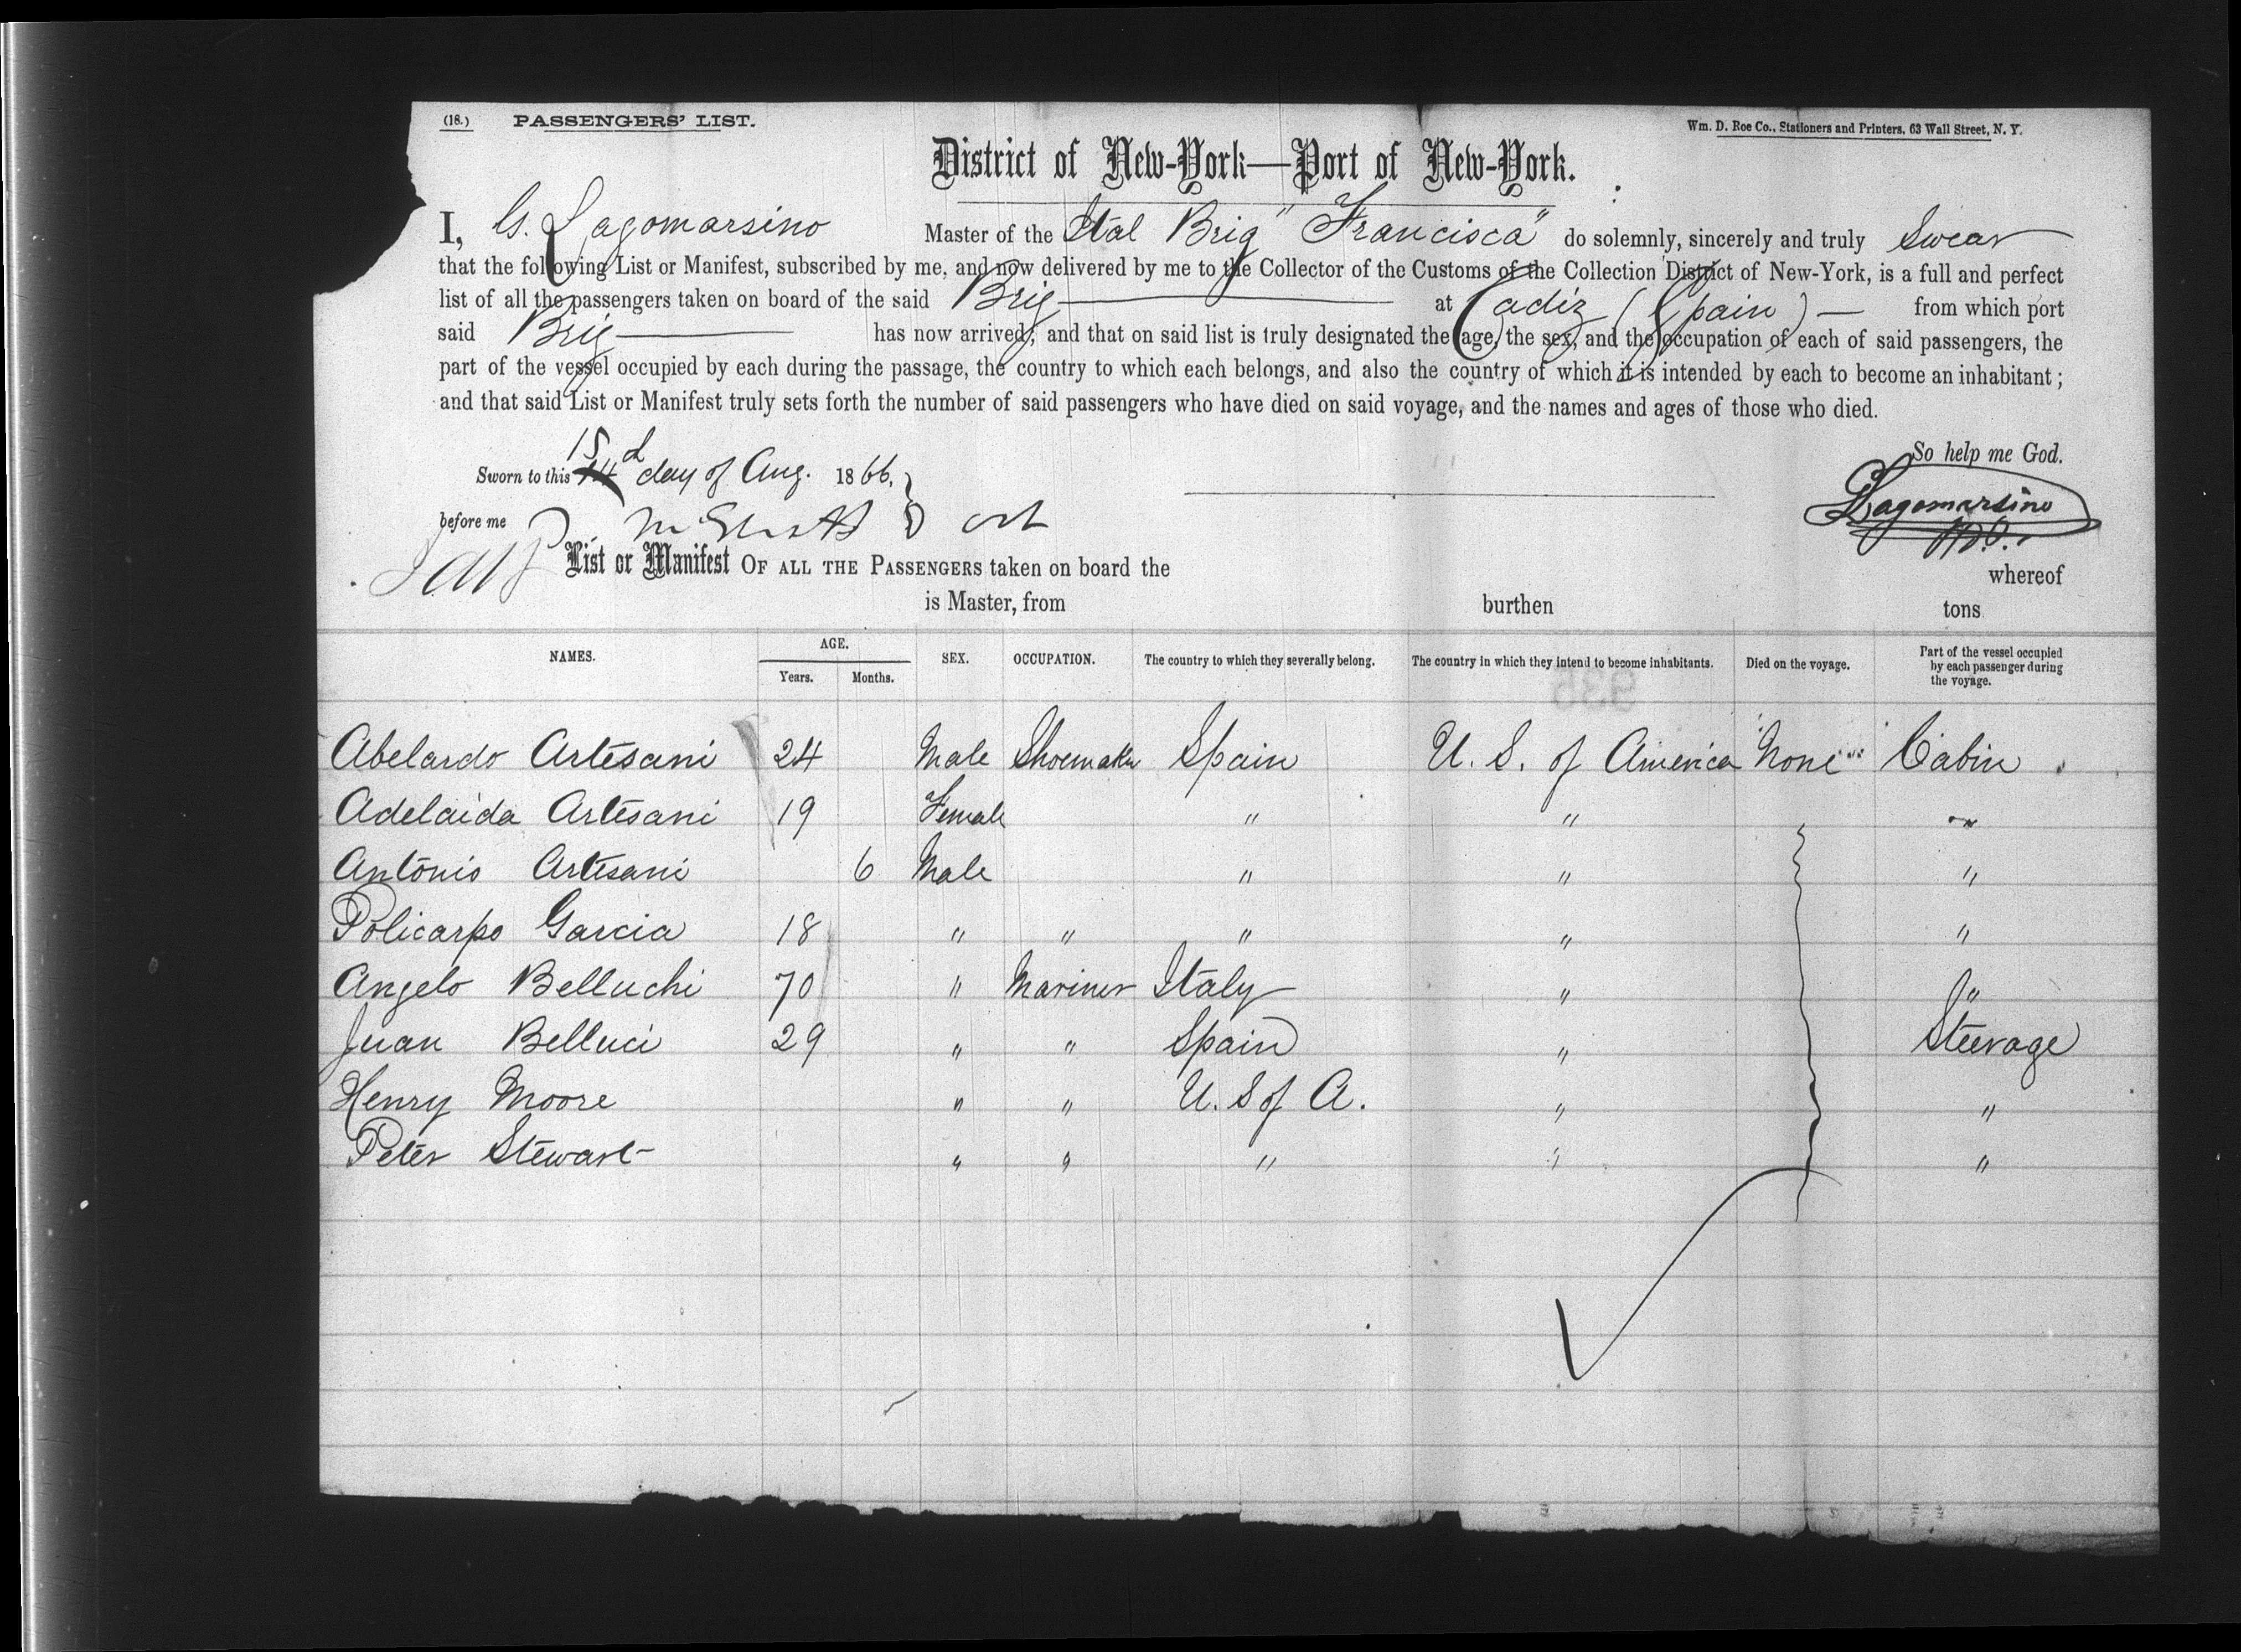 (18.) PASSENGERS' LIST. Wm. D. Roe Co., Stationers and Printers, 63 Wall Street, N. Y.
District of New-York—Port of New-York.
I, G. Lagomarsino Master of the Ital Brig "Francisca" do solemnly, sincerely and truly Swear
that the following List or Manifest, subscribed by me, and now delivered by me to the Collector of the Customs of the Collection District of New-York, is a full and perfect
list of all the passengers taken on board of the said Brig at Cadiz (Spain) — from which port
said Brig has now arrived; and that on said list is truly designated the age, the sex, and the occupation of each of said passengers, the
part of the vessel occupied by each during the passage, the country to which each belongs, and also the country of which it is intended by each to become an inhabitant;
and that said List or Manifest truly sets forth the number of said passengers who have died on said voyage, and the names and ages of those who died.
So help me God.
Sworn to this 15 day of Aug. 1866,
Lagomarsino
before me
List or Manifest OF ALL THE PASSENGERS taken on board the whereof
is Master, from burthen tons
NAMES. AGE. Years. Months. SEX. OCCUPATION. The country to which they severally belong. The country in which they intend to become inhabitants. Died on the voyage. Part of the vessel occupied by each passenger during the voyage.
Abelardo Artesani 24 Male Shoemaker Spain U. S. of America None Cabin
Adelaida Artesani 19 Female " " "
Antonio Artesani 6 Male " " "
Policarpo Garcia 18 " " " " "
Angelo Belluchi 70 " Mariner Italy " "
Juan Belluci 29 " " Spain " Steerage
Henry Moore " " U. S of A. " "
Peter Stewart " " " " "